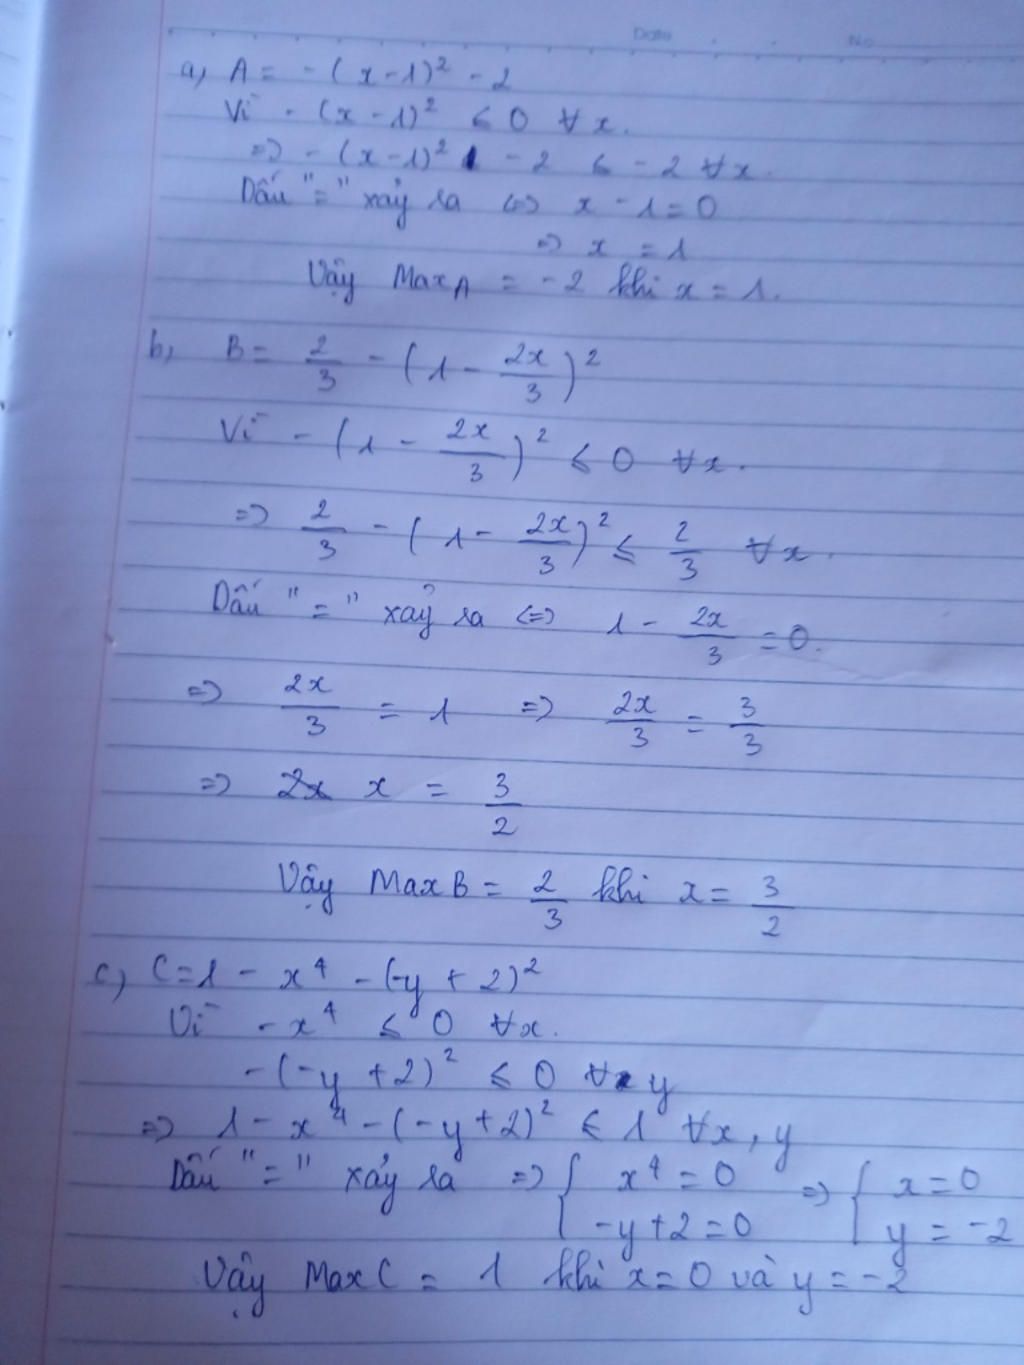 Date No
a, A = -(x-1)² - 2
Vì -(x-1)² ≤ 0 ∀x.
=> -(x-1)² - 2 ≤ -2 ∀x.
Dấu "=" xảy ra <=> x - 1 = 0
=> x = 1
Vậy Max A = -2 khi x = 1.
b, B = 2/3 - (1 - 2x/3)²
Vì -(1 - 2x/3)² ≤ 0 ∀x.
=> 2/3 - (1 - 2x/3)² ≤ 2/3 ∀x.
Dấu "=" xảy ra <=> 1 - 2x/3 = 0.
=> 2x/3 = 1 => 2x/3 = 3/3
=> x = 3/2
Vậy Max B = 2/3 khi x = 3/2
c, C = 1 - x⁴ - (-y + 2)²
Vì -x⁴ ≤ 0 ∀x.
-(-y + 2)² ≤ 0 ∀y
=> 1 - x⁴ - (-y + 2)² ≤ 1 ∀x, y
Dấu "=" xảy ra => { x⁴ = 0 => { x = 0
-y + 2 = 0 y = -2
Vậy Max C = 1 khi x = 0 và y = -2